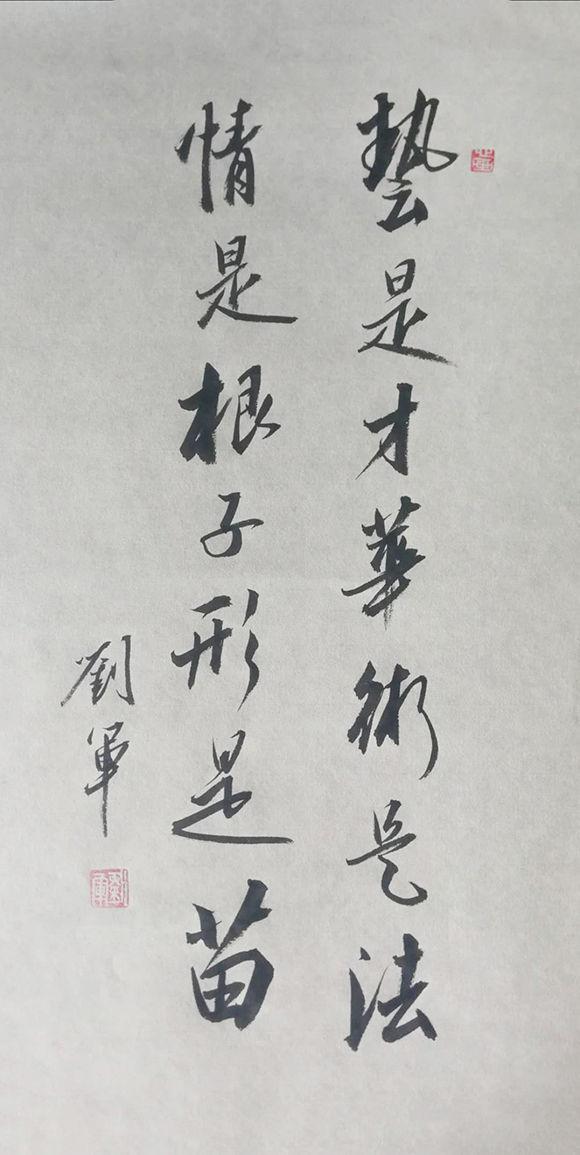 藝是才華術是法
情是根子形是苗
劉軍
劉軍